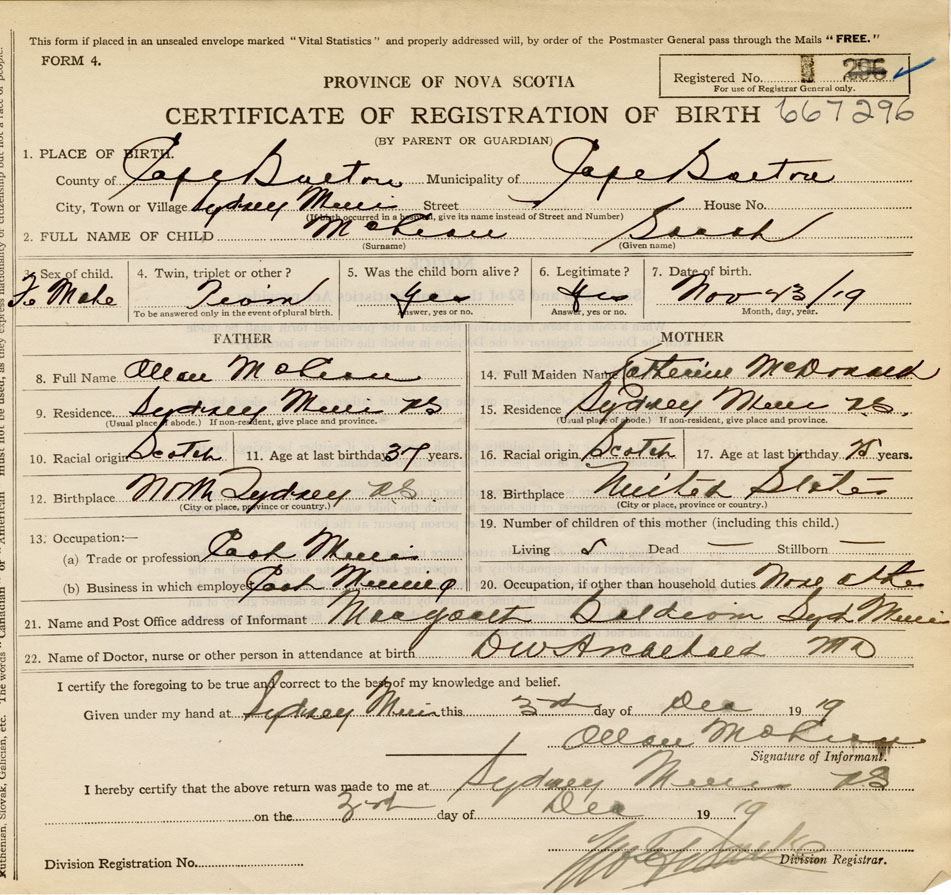 This form if placed in an unsealed envelope marked "Vital Statistics" and properly addressed will, by order of the Postmaster General pass through the Mails "FREE."
FORM 4.
Registered No. 296
For use of Registrar General only.
PROVINCE OF NOVA SCOTIA
CERTIFICATE OF REGISTRATION OF BIRTH 667296
(BY PARENT OR GUARDIAN)
1. PLACE OF BIRTH.
County of Cape Breton Municipality of Cape Breton
City, Town or Village Sydney Mines Street House No.
(If birth occurred in a hospital, give its name instead of Street and Number)
2. FULL NAME OF CHILD McLean Sarah
(Surname) (Given name)
3. Sex of child. 4. Twin, triplet or other? 5. Was the child born alive? 6. Legitimate? 7. Date of birth.
Fe Male Twin Yes Yes Nov 23/19
To be answered only in the event of plural birth. Answer, yes or no. Answer, yes or no. Month, day, year.
FATHER MOTHER
8. Full Name Allan McLean 14. Full Maiden Name Catherine McDonald
9. Residence Sydney Mines NS 15. Residence Sydney Mines NS.
(Usual place of abode.) If non-resident, give place and province. (Usual place of abode.) If non-resident, give place and province.
10. Racial origin Scotch 11. Age at last birthday 37 years. 16. Racial origin Scotch 17. Age at last birthday years.
12. Birthplace North Sydney NS. 18. Birthplace United States
(City or place, province or country.) (City or place, province or country.)
13. Occupation:— 19. Number of children of this mother (including this child.)
(a) Trade or profession Miner Living Dead — Stillborn —
(b) Business in which employed Mining 20. Occupation, if other than household duties None other
21. Name and Post Office address of Informant Margaret Baldwin Syd Mines
22. Name of Doctor, nurse or other person in attendance at birth DW Archibald MD
I certify the foregoing to be true and correct to the best of my knowledge and belief.
Given under my hand at Sydney Mines this 3rd day of Dec 1919
Allan McLean
Signature of Informant.
I hereby certify that the above return was made to me at Sydney Mines NS
on the 3rd day of Dec 1919
Division Registration No. Division Registrar.